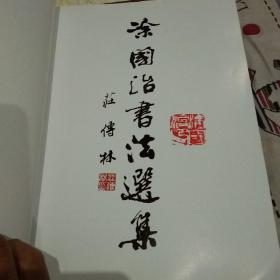 涂國治書法選集
莊傳林